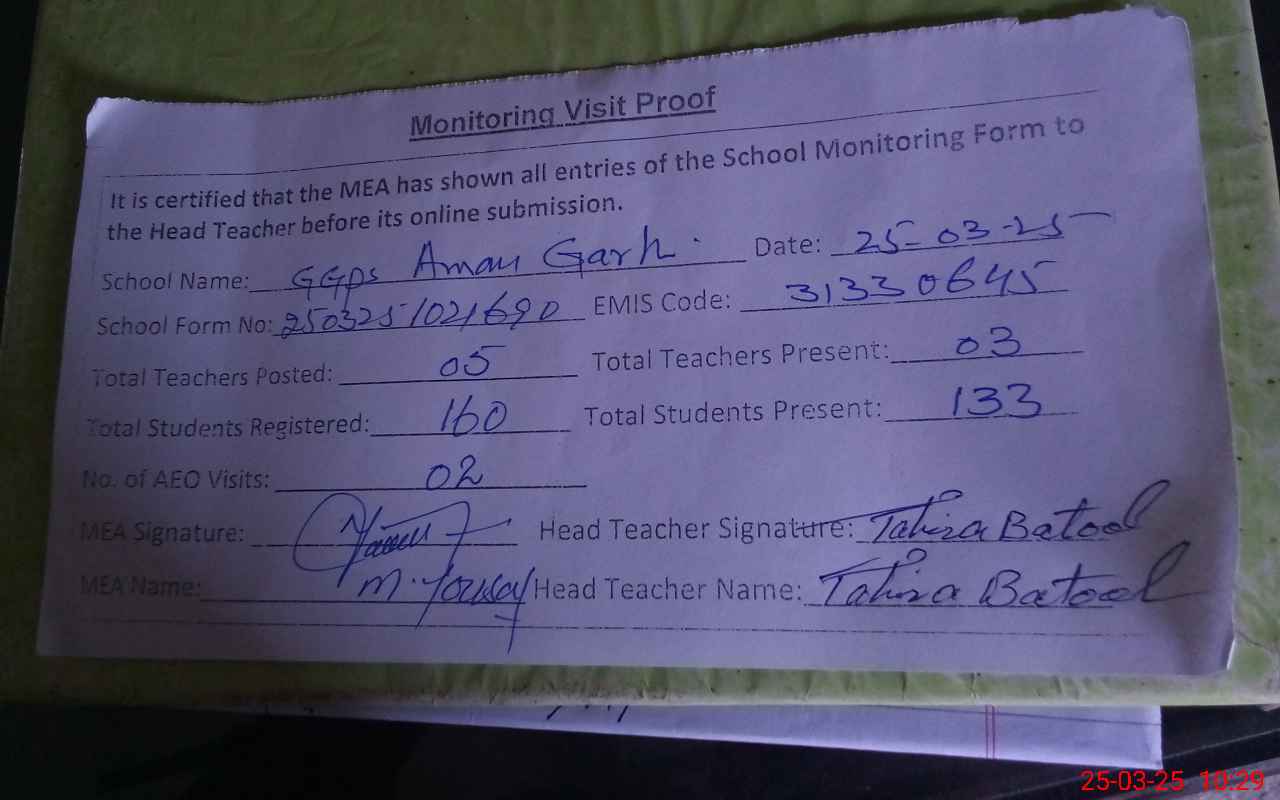 Monitoring Visit Proof
It is certified that the MEA has shown all entries of the School Monitoring Form to
the Head Teacher before its online submission.
School Name: GGps Aman Garh. Date: 25-03-25
School Form No: 250325/021690 EMIS Code: 31330645
Total Teachers Posted: 05 Total Teachers Present: 03
Total Students Registered: 160 Total Students Present: 133
No. of AEO Visits: 02
MEA Signature: Head Teacher Signature: Tahira Batool
MEA Name: M. Yousaf Head Teacher Name: Tahira Batool
25-03-25 10:29